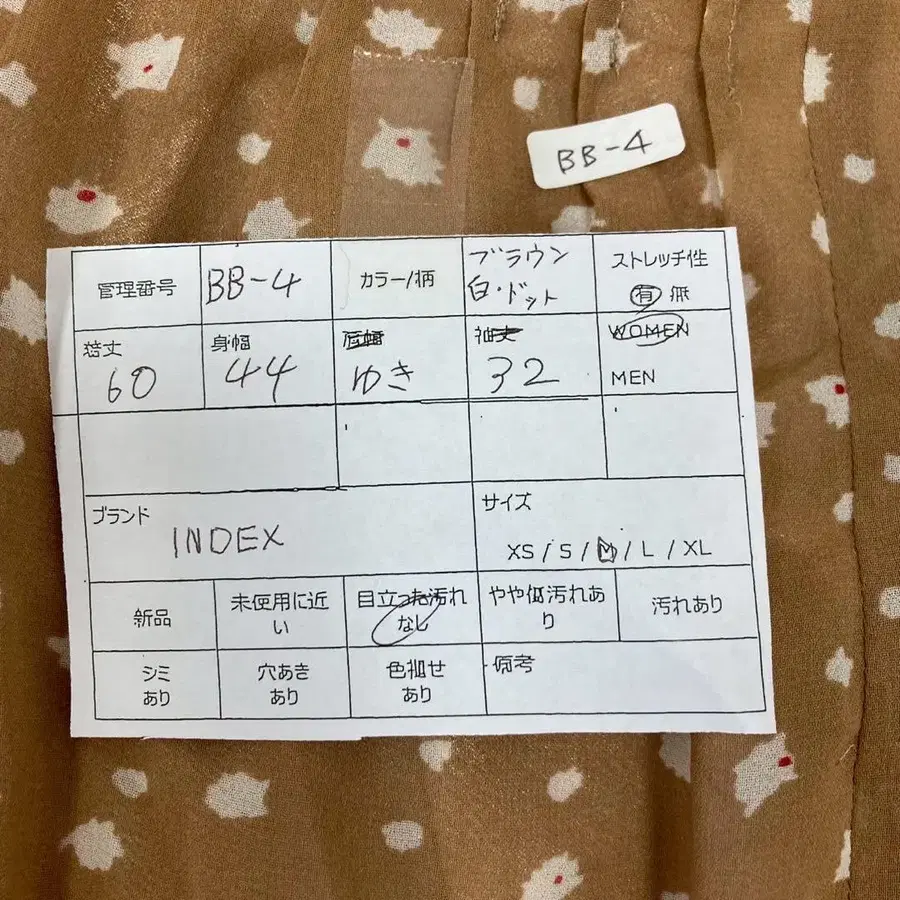 BB-4
管理番号
BB-4
カラー/柄
ブラウン
白・ドット
ストレッチ性
有 無
着丈
60
身幅
44
肩幅
ゆき
袖丈
32
WOMEN
MEN
ブランド
INDEX
サイズ
XS / S / M / L / XL
新品
未使用に近
い
目立った汚れ
なし
やや傷汚れあ
り
汚れあり
シミ
あり
穴あき
あり
色褪せ
あり
備考